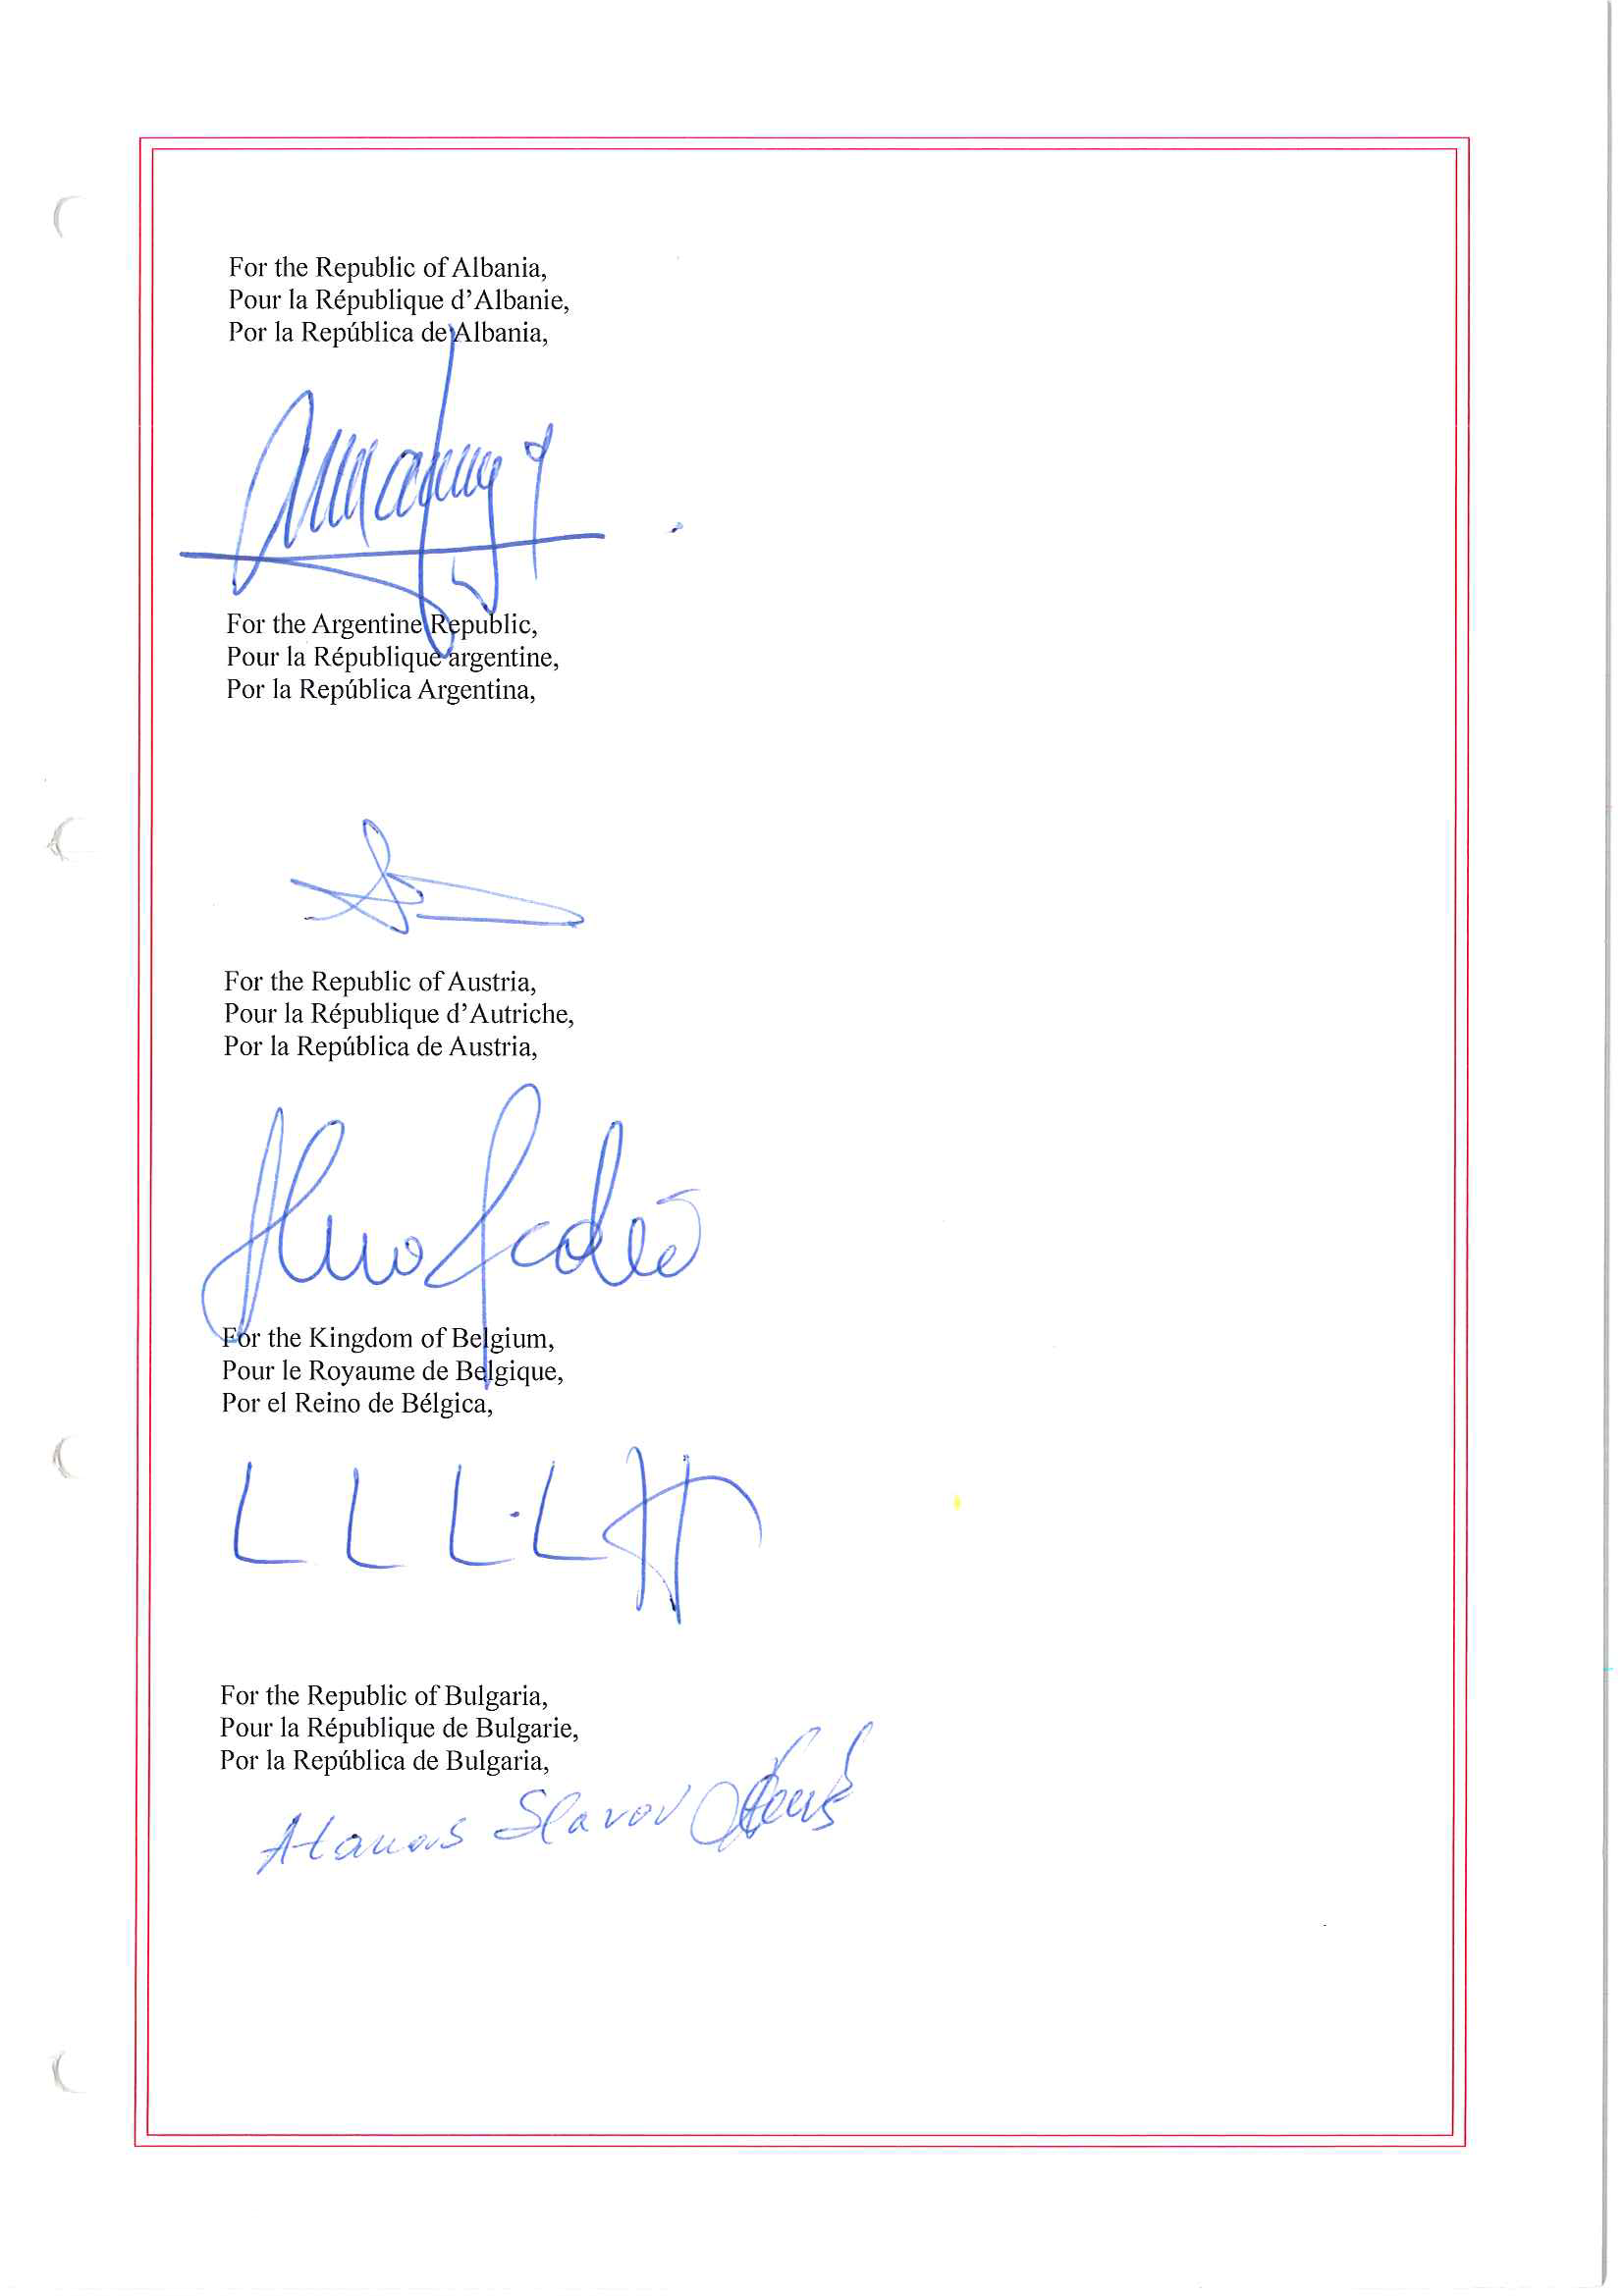 For the Republic of Albania,
Pour la République d'Albanie,
Por la República de Albania,
For the Argentine Republic,
Pour la République argentine,
Por la República Argentina,
For the Republic of Austria,
Pour la République d'Autriche,
Por la República de Austria,
For the Kingdom of Belgium,
Pour le Royaume de Belgique,
Por el Reino de Bélgica,
For the Republic of Bulgaria,
Pour la République de Bulgarie,
Por la República de Bulgaria,
Atanas Slavov